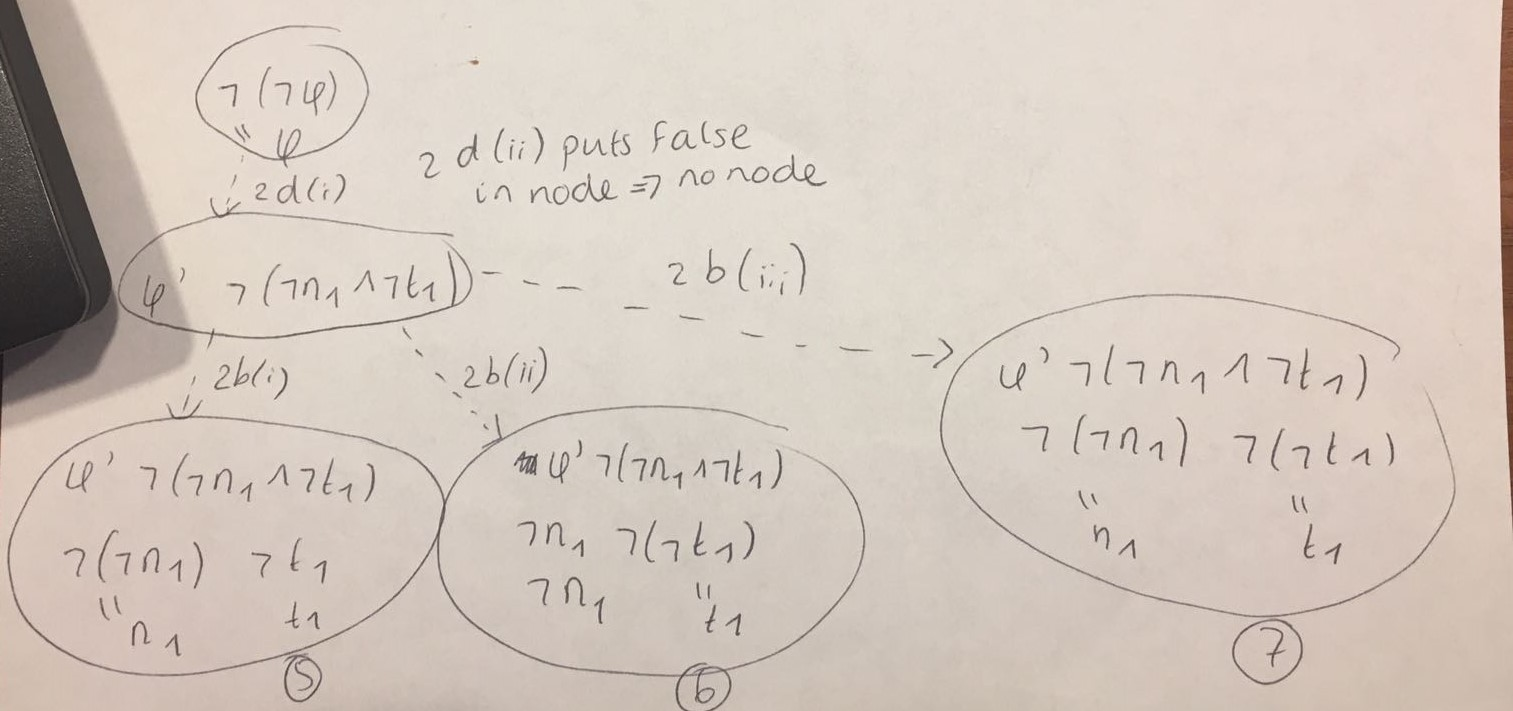 ¬(¬φ)
" φ
2d(i)
2 d(ii) puts False
in node => no node
φ' ¬(¬n₁∧¬t₁)
2b(iii)
2b(i)
2b(ii)
φ' ¬(¬n₁∧¬t₁)
¬(¬n₁) ¬t₁
"
n₁ t₁
5
φ' ¬(¬n₁∧¬t₁)
¬n₁ ¬(¬t₁)
¬n₁ "
t₁
6
φ' ¬(¬n₁∧¬t₁)
¬(¬n₁) ¬(¬t₁)
" "
n₁ t₁
7